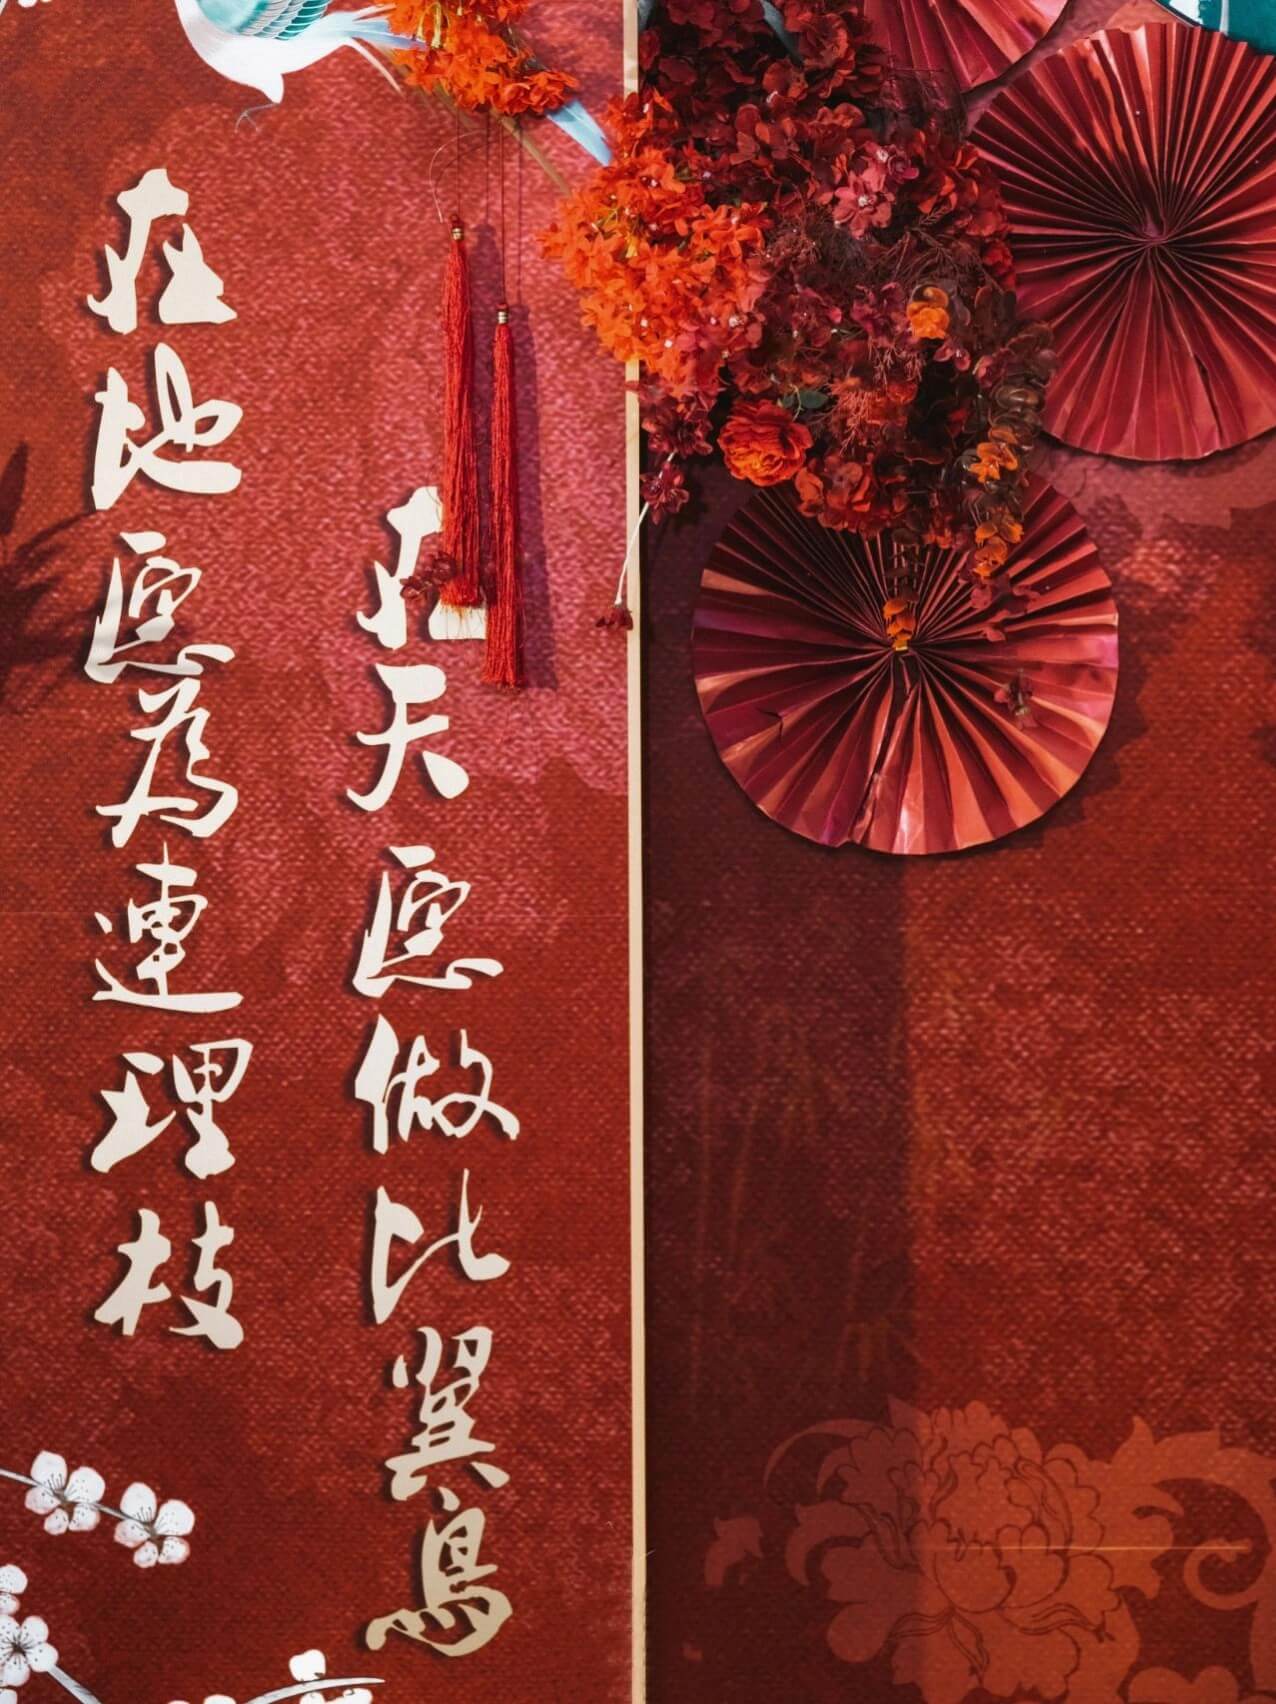 在天愿做比翼鳥
在地愿為連理枝